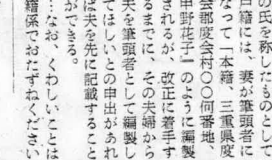 の氏を称したものとして
戸籍には、妻が筆頭者に
なって「本籍、三重県度
会郡度会村〇〇何番地
甲野花子」のように編製
されるが、改正に着手す
るまでに、その夫婦から
夫を筆頭者として編製し
てほしいとの申出があれ
ば夫を先に記載すること
ができる。
…なお、くわしいことは
籍係でおたずねください